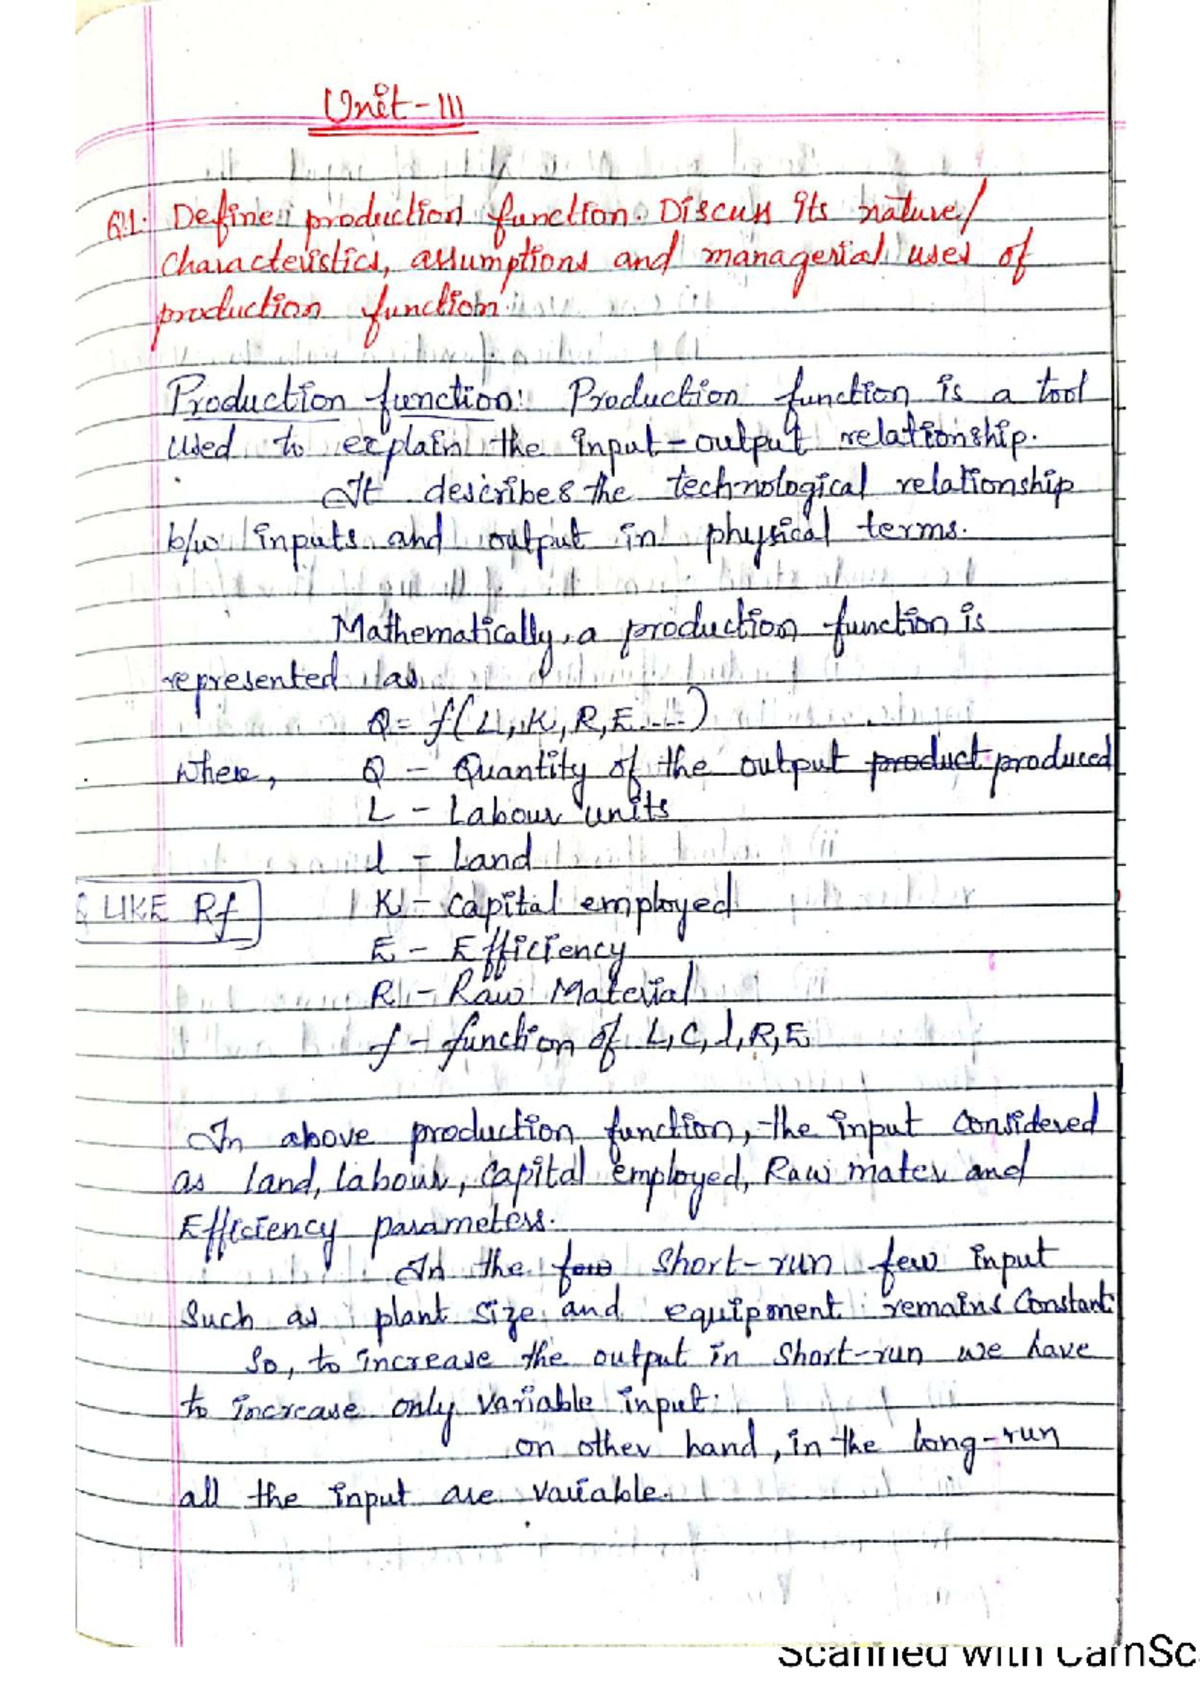 Unit-III
Q1. Define production function. Discuss its nature/
characteristics, assumptions and managerial uses of
production function.
Production function: Production function is a tool
used to explain the input-output relationship.
It describes the technological relationship
b/w inputs and output in physical terms.
Mathematically, a production function is
represented as
Q = f(L, l, K, R, E ....)
where, Q - Quantity of the output product produced
L - Labour units
l - Land
& LIKE Rf K - Capital employed
E - Efficiency
R - Raw Material
f - function of L, C, l, R, E
In above production function, the input considered
as land, labour, capital employed, Raw mater and
Efficiency parameters.
In the few short-run few input
such as plant size and equipment remains constant
So, to increase the output in short-run we have
to increase only variable input.
on other hand, in the long-run
all the input are variable.
Scanned with CamSc